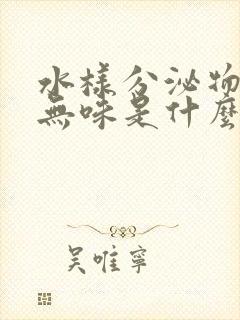 水樣分泌物
無味是什麼
吳唯寧